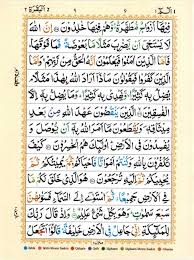 البقرة ٢
فِيْهَآ اَزْوَاجٌ مُّطَهَّرَةٌ وَّهُمْ فِيْهَا خٰلِدُوْنَ اِنَّ اللّٰهَ
لَا يَسْتَحْيٖٓ اَنْ يَّضْرِبَ مَثَلًا مَّا بَعُوْضَةً فَمَا فَوْقَهَا
فَاَمَّا الَّذِيْنَ اٰمَنُوْا فَيَعْلَمُوْنَ اَنَّهُ الْحَقُّ مِنْ رَّبِّهِمْ وَاَمَّا
الَّذِيْنَ كَفَرُوْا فَيَقُوْلُوْنَ مَاذَآ اَرَادَ اللّٰهُ بِهٰذَا مَثَلًا
يُضِلُّ بِهٖ كَثِيْرًا وَّيَهْدِيْ بِهٖ كَثِيْرًا وَمَا يُضِلُّ بِهٖٓ
اِلَّا الْفٰسِقِيْنَ الَّذِيْنَ يَنْقُضُوْنَ عَهْدَ اللّٰهِ مِنْ
بَعْدِ مِيْثَاقِهٖ وَيَقْطَعُوْنَ مَآ اَمَرَ اللّٰهُ بِهٖٓ اَنْ يُّوْصَلَ وَ
يُفْسِدُوْنَ فِي الْاَرْضِ اُولٰٓئِكَ هُمُ الْخٰسِرُوْنَ كَيْفَ
تَكْفُرُوْنَ بِاللّٰهِ وَكُنْتُمْ اَمْوَاتًا فَاَحْيَاكُمْ ثُمَّ يُمِيْتُكُمْ
ثُمَّ يُحْيِيْكُمْ ثُمَّ اِلَيْهِ تُرْجَعُوْنَ هُوَ الَّذِيْ خَلَقَ لَكُمْ
مَّا فِي الْاَرْضِ جَمِيْعًا ثُمَّ اسْتَوٰٓى اِلَى السَّمَآءِ فَسَوّٰىهُنَّ
سَبْعَ سَمٰوٰتٍ وَهُوَ بِكُلِّ شَيْءٍ عَلِيْمٌ وَاِذْ قَالَ رَبُّكَ